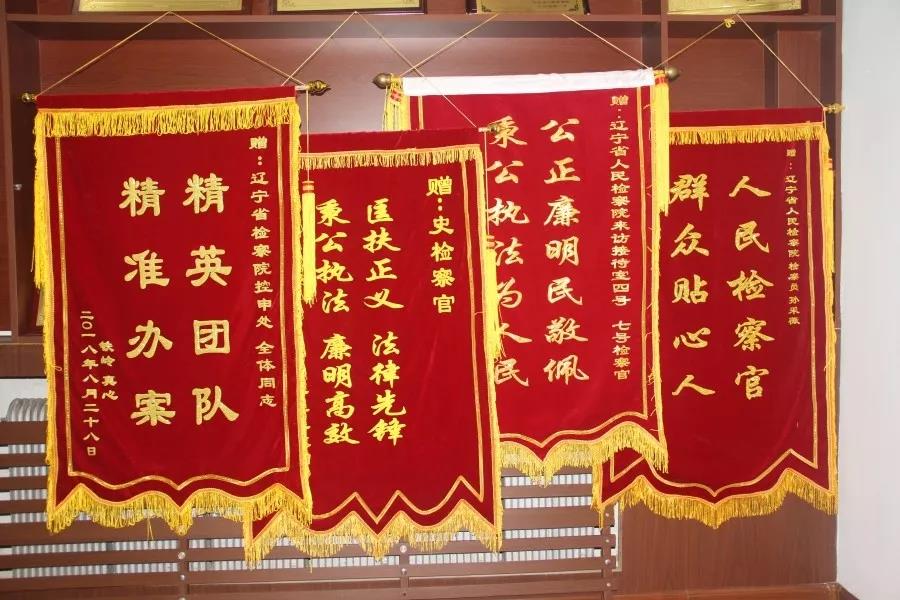 赠：辽宁省检察院控申处 全体同志
精英团队
精准办案
铁岭 真心
二〇一八年八月二十八日
赠：史检察官
匡扶正义 法律先锋
秉公执法 廉明高效
赠：辽宁省人民检察院来访接待室四号 七号检察官
公正廉明民敬佩
秉公执法为人民
赠：辽宁省人民检察院 检察员
人民检察官
群众贴心人